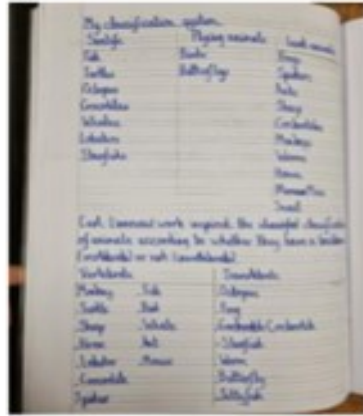 My classification system
Sealife Flying animals Land animals
Fish Birds Frogs
Turtles Butterflys Spiders
Octopus Ants
Crocodiles Sheep
Whales
Lobsters Monkeys
Starfish Worms
Horse
Snail
work inspired this
of animals according to whether they have a
(vertebrate) or not (invertebrate)
Vertebrate Invertebrate
Monkey Fish Octopus
Turtle Bird Frog
Sheep Whale
Horse Starfish
Lobster Mouse Worm
Crocodile Butterfly
Spider Jellyfish